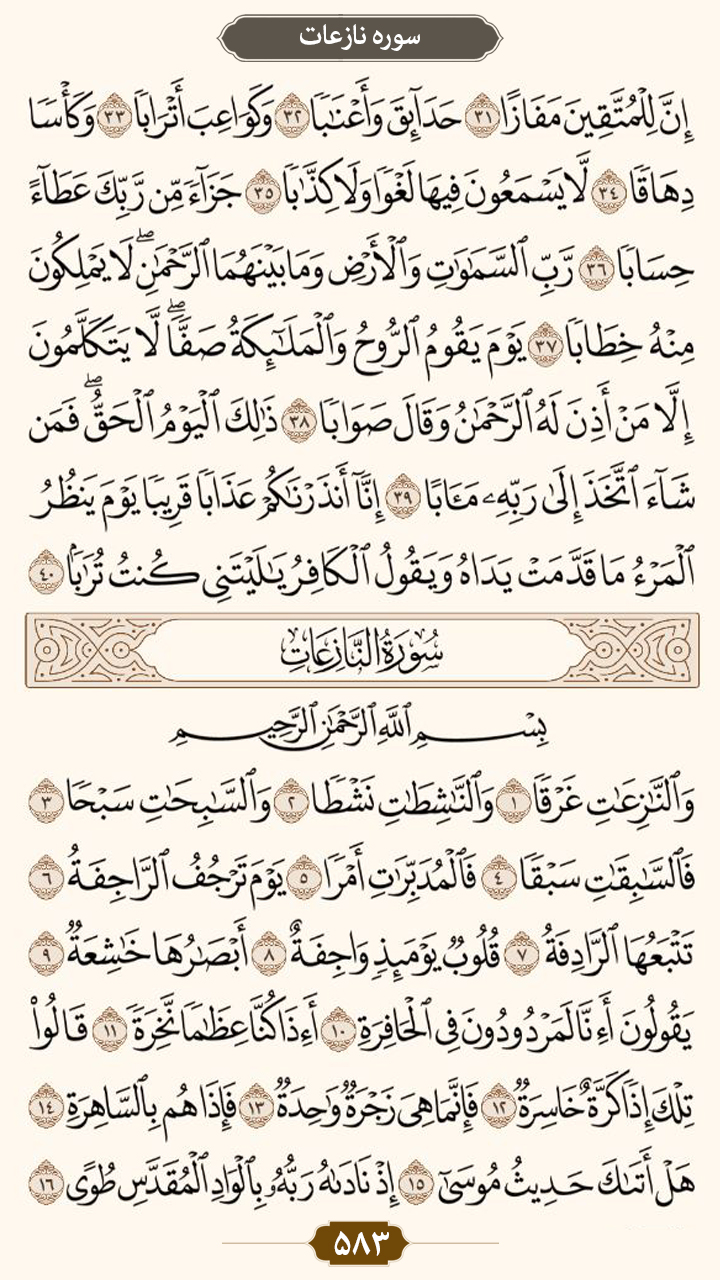 سوره نازعات
إِنَّ لِلْمُتَّقِينَ مَفَازًا ٣١ حَدَآئِقَ وَأَعْنَٰبًا ٣٢ وَكَوَاعِبَ أَتْرَابًا ٣٣ وَكَأْسًا
دِهَاقًا ٣٤ لَّا يَسْمَعُونَ فِيهَا لَغْوًا وَلَا كِذَّٰبًا ٣٥ جَزَآءً مِّن رَّبِّكَ عَطَآءً
حِسَابًا ٣٦ رَّبِّ ٱلسَّمَٰوَٰتِ وَٱلْأَرْضِ وَمَا بَيْنَهُمَا ٱلرَّحْمَٰنِۖ لَا يَمْلِكُونَ
مِنْهُ خِطَابًا ٣٧ يَوْمَ يَقُومُ ٱلرُّوحُ وَٱلْمَلَٰٓئِكَةُ صَفًّاۖ لَّا يَتَكَلَّمُونَ
إِلَّا مَنْ أَذِنَ لَهُ ٱلرَّحْمَٰنُ وَقَالَ صَوَابًا ٣٨ ذَٰلِكَ ٱلْيَوْمُ ٱلْحَقُّۖ فَمَن
شَآءَ ٱتَّخَذَ إِلَىٰ رَبِّهِۦ مَـَٔابًا ٣٩ إِنَّآ أَنذَرْنَٰكُمْ عَذَابًا قَرِيبًا يَوْمَ يَنظُرُ
ٱلْمَرْءُ مَا قَدَّمَتْ يَدَاهُ وَيَقُولُ ٱلْكَافِرُ يَٰلَيْتَنِى كُنتُ تُرَٰبًۢا ٤٠
سُورَةُ النَّازِعَاتِ
بِسْمِ ٱللَّهِ ٱلرَّحْمَٰنِ ٱلرَّحِيمِ
وَٱلنَّٰزِعَٰتِ غَرْقًا ١ وَٱلنَّٰشِطَٰتِ نَشْطًا ٢ وَٱلسَّٰبِحَٰتِ سَبْحًا ٣
فَٱلسَّٰبِقَٰتِ سَبْقًا ٤ فَٱلْمُدَبِّرَٰتِ أَمْرًا ٥ يَوْمَ تَرْجُفُ ٱلرَّاجِفَةُ ٦
تَتْبَعُهَا ٱلرَّادِفَةُ ٧ قُلُوبٌ يَوْمَئِذٍ وَاجِفَةٌ ٨ أَبْصَٰرُهَا خَٰشِعَةٌ ٩
يَقُولُونَ أَءِنَّا لَمَرْدُودُونَ فِى ٱلْحَافِرَةِ ١٠ أَءِذَا كُنَّا عِظَٰمًا نَّخِرَةً ١١ قَالُوا۟
تِلْكَ إِذًا كَرَّةٌ خَاسِرَةٌ ١٢ فَإِنَّمَا هِىَ زَجْرَةٌ وَٰحِدَةٌ ١٣ فَإِذَا هُم بِٱلسَّاهِرَةِ ١٤
هَلْ أَتَىٰكَ حَدِيثُ مُوسَىٰٓ ١٥ إِذْ نَادَىٰهُ رَبُّهُۥ بِٱلْوَادِ ٱلْمُقَدَّسِ طُوًى ١٦
۵۸۳